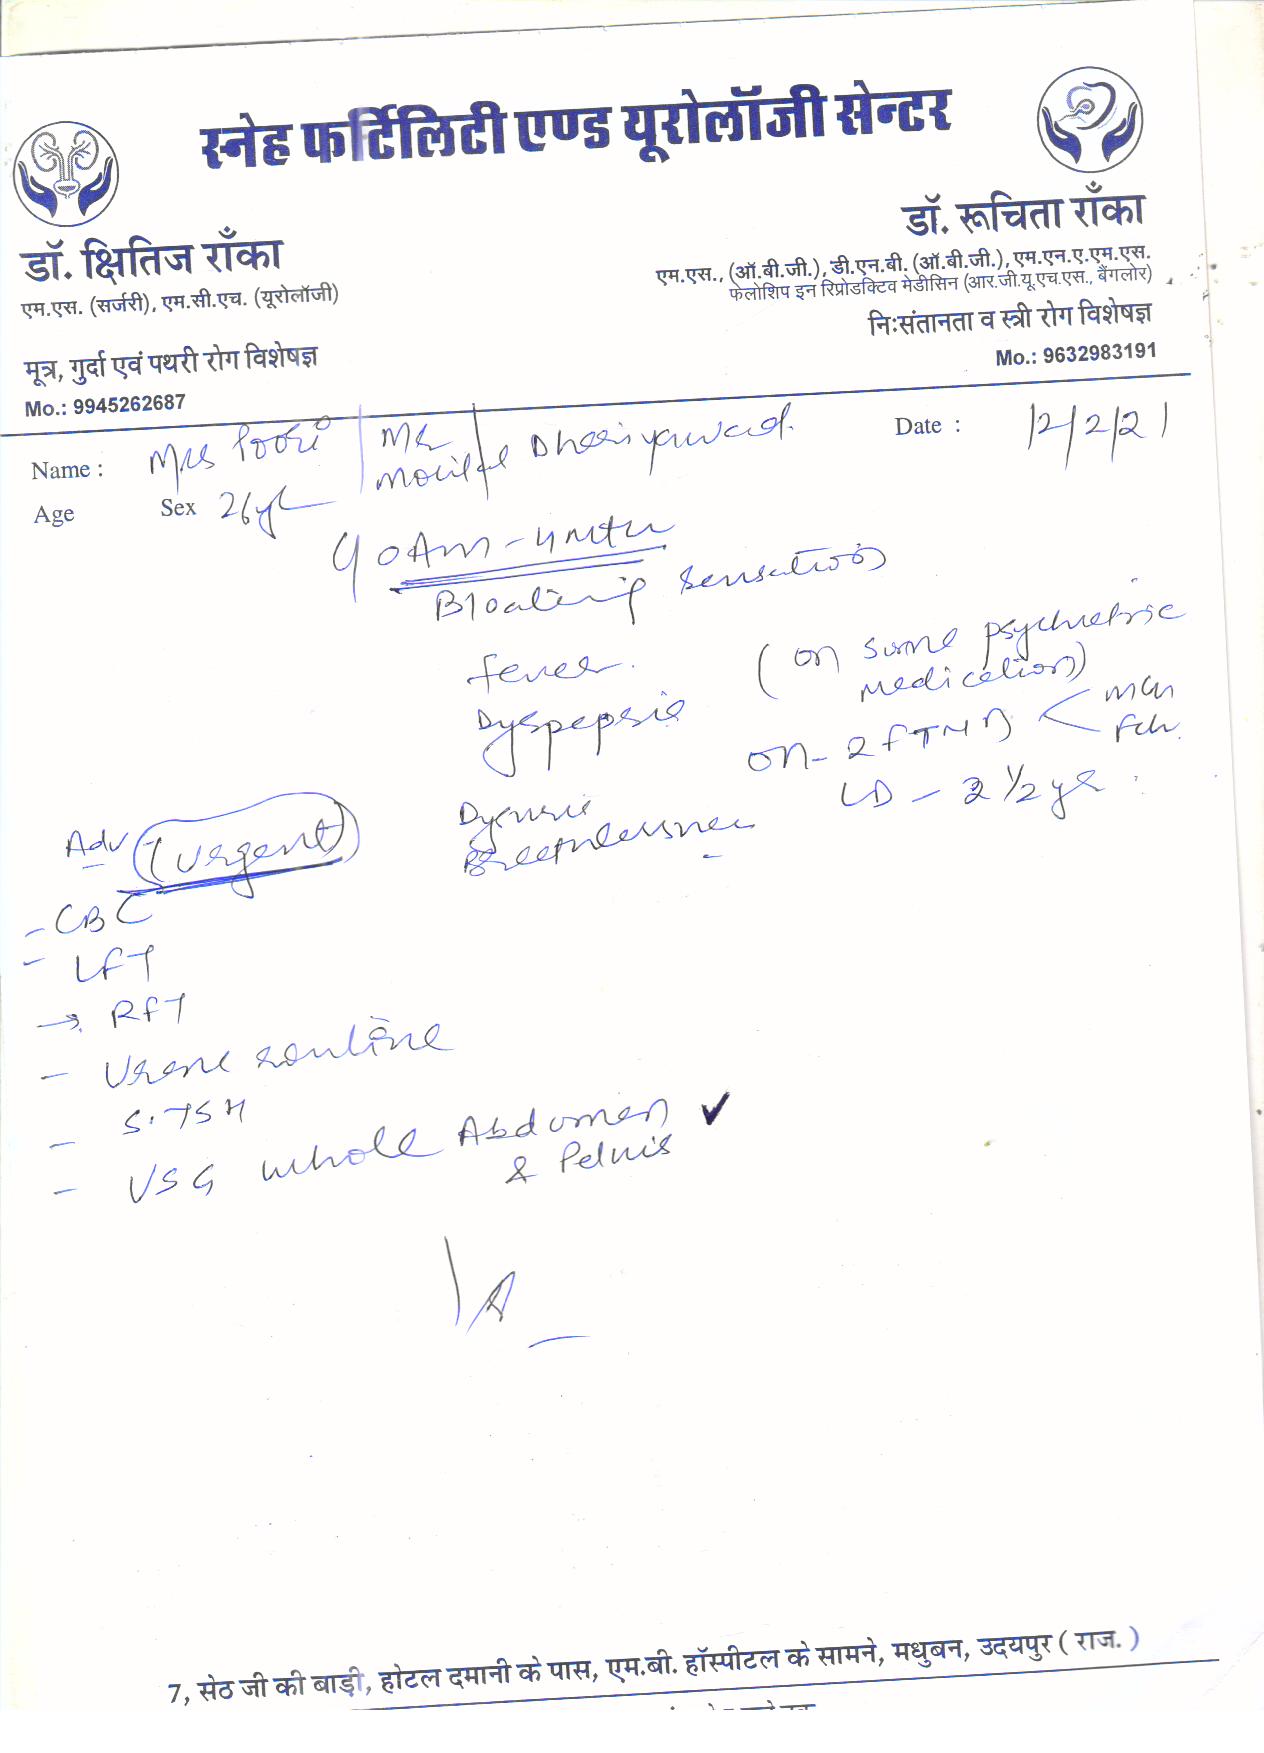 स्नेह फर्टिलिटी एण्ड यूरोलॉजी सेन्टर
डॉ. क्षितिज राँका
एम.एस. (सर्जरी), एम.सी.एच. (यूरोलॉजी)
मूत्र, गुर्दा एवं पथरी रोग विशेषज्ञ
Mo.: 9945262687
डॉ. रूचिता राँका
एम.एस., (ऑ.बी.जी.), डी.एन.बी. (ऑ.बी.जी.), एम.एन.ए.एम.एस.
फेलोशिप इन रिप्रोडक्टिव मेडीसिन (आर.जी.यू.एच.एस., बैंगलोर)
निःसंतानता व स्त्री रोग विशेषज्ञ
Mo.: 9632983191
Name : Mrs / Mr
Date : 12/2/21
Age Sex 26yr
Bloating sensation
fever. (on some psychiatric
medication)
Dyspepsia
2 FTND < Mch
Fch.
LD - 2 1/2 yr
Dysuria
Breathlessness
Adv (urgent)
- CBC
- LFT
→ RFT
- Urene routine
- S. TSH
- USG whole Abdomen ✓
& Pelvis
7, सेठ जी की बाड़ी, होटल दमानी के पास, एम.बी. हॉस्पीटल के सामने, मधुबन, उदयपुर ( राज. )